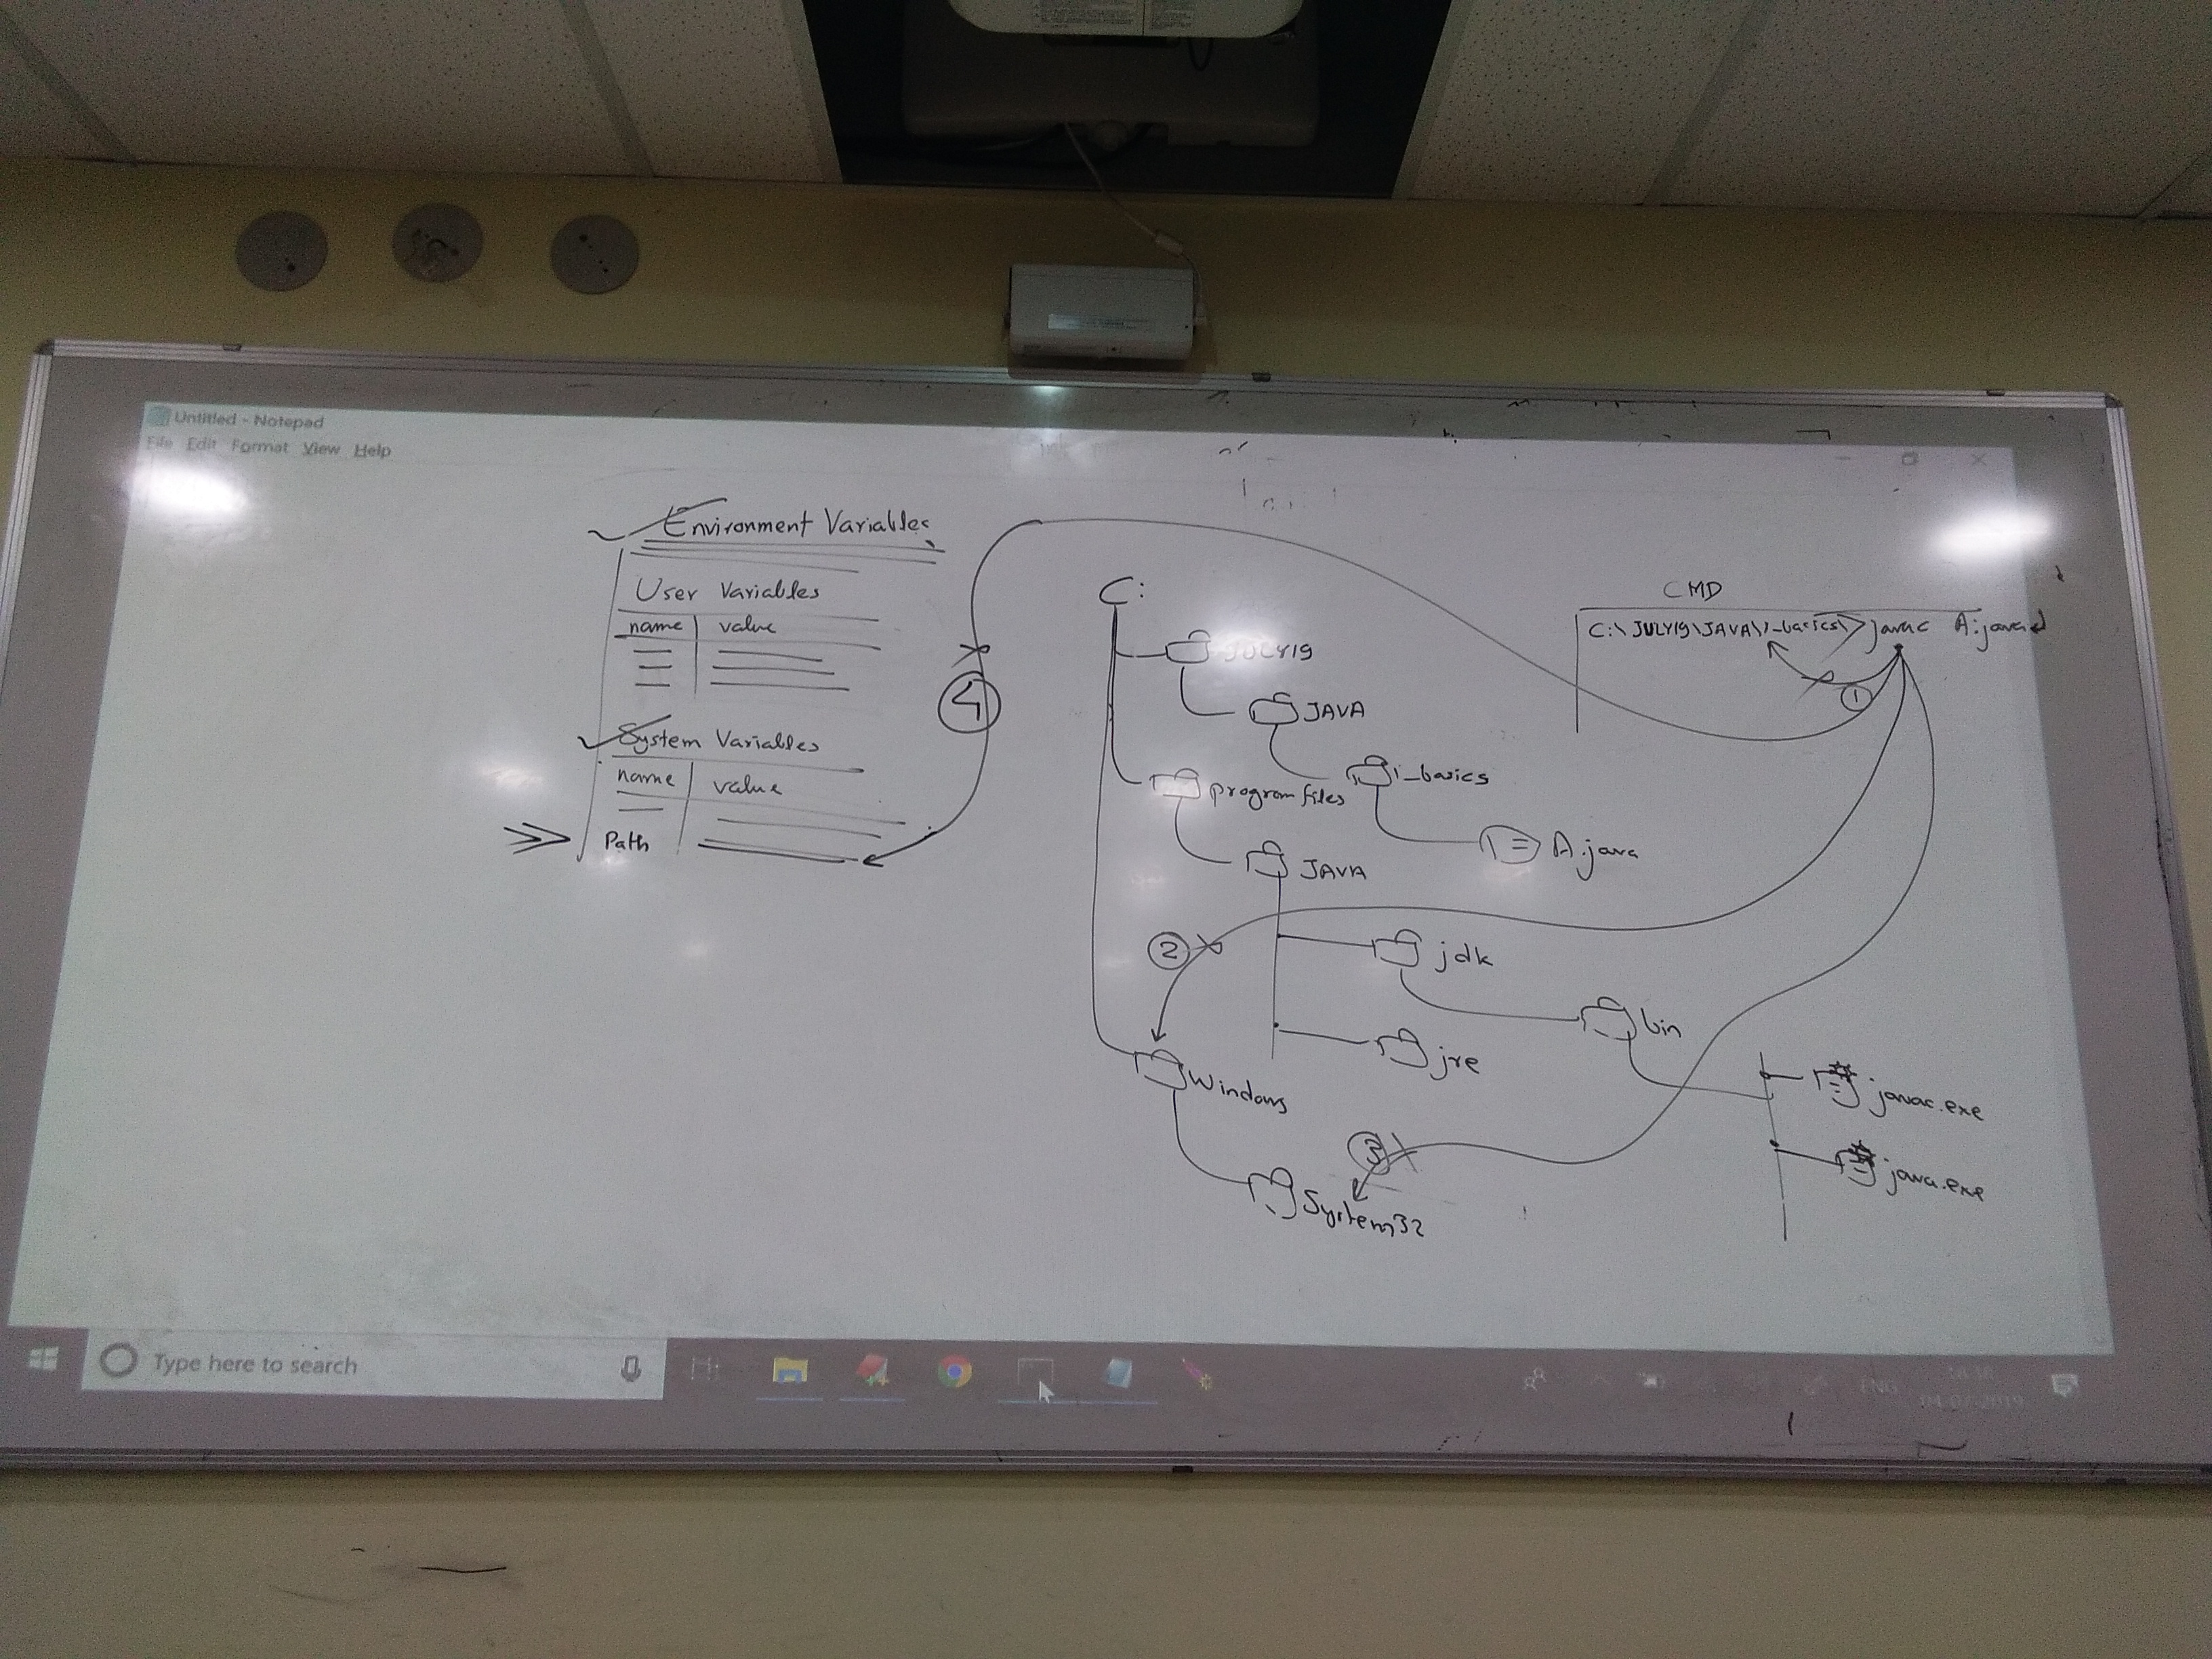 Untitled - Notepad
File Edit Format View Help
Environment Variables
User Variables
name value
System Variables
name value
Path
4
C:
JULY19
JAVA
1_basics
A.java
program files
JAVA
jdk
bin
javac.exe
java.exe
jre
2
Windows
3
System32
CMD
C:\JULY19\JAVA\1_basics\> javac A.java
1
Type here to search
ENG
18:36
04-07-2019